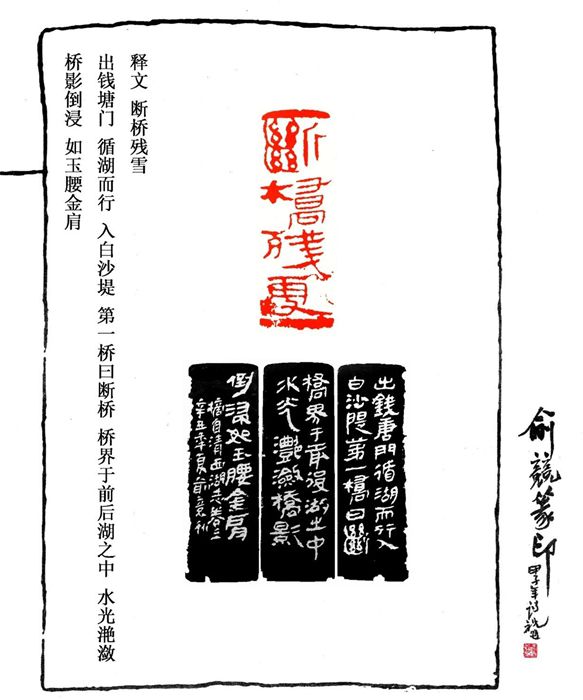 俞競篆印
甲子年
斷橋殘雪
出錢唐門循湖而行入
白沙隄第一橋曰斷
橋界于前後湖之中
水光灧瀲橋影
倒浸如玉腰金肩
摘自清西湖志卷三
辛丑季夏俞竞刻
释文 断桥残雪
出钱塘门 循湖而行 入白沙堤 第一桥曰断桥 桥界于前后湖之中 水光滟潋
桥影倒浸 如玉腰金肩